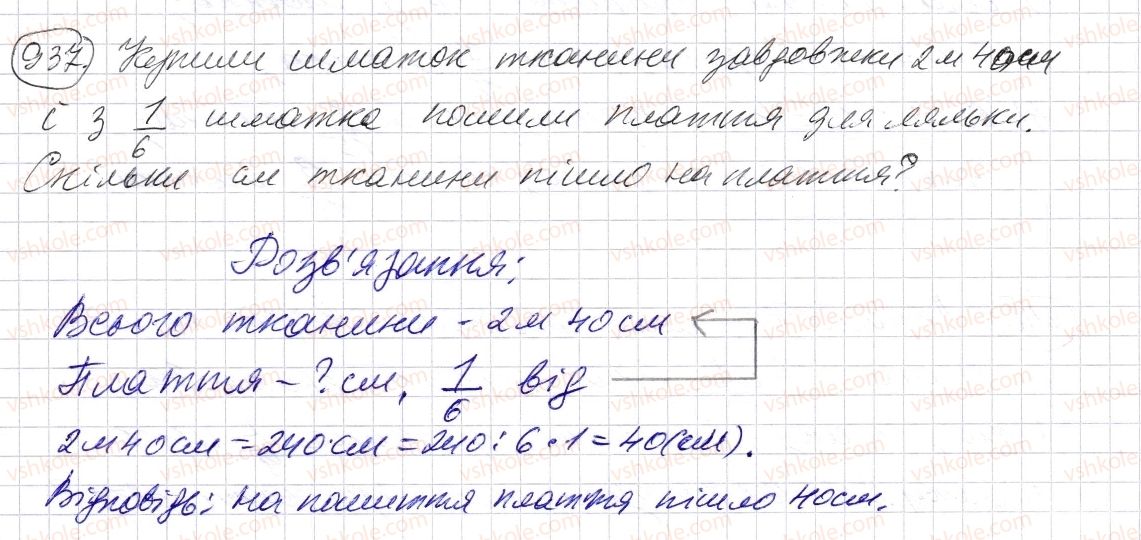 937. Купили шматок тканини завдовжки 2 м 40 см
і з 1/6 шматка пошили плаття для ляльки.
Скільки см тканини пішло на плаття?
Розв'язання:
Всього тканини - 2 м 40 см
Плаття - ? см, 1/6 від
2 м 40 см = 240 см = 240 : 6 · 1 = 40 (см).
Відповідь: на пошиття плаття пішло 40 см.